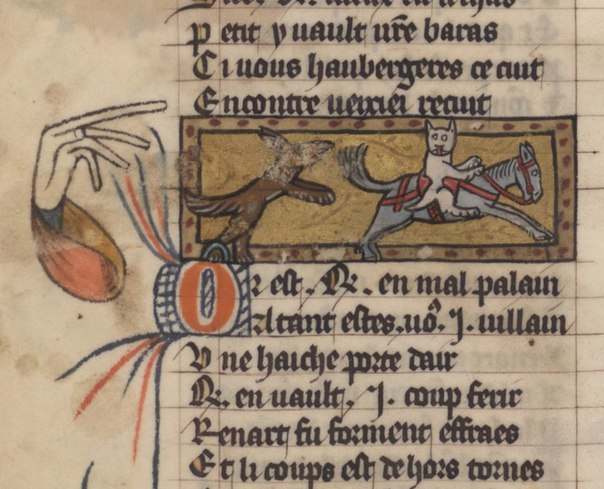 Petit y vault vr̄e baras
Ci vous haubergeres ce cuit
Encontre recuit
Or est .R. en mal palain
Atant estes.uō. .I. uillain
Une haiche porte dair
R. en vault .I. coup ferir
Renart fu forment effraes
Et li coups est dehors tornes